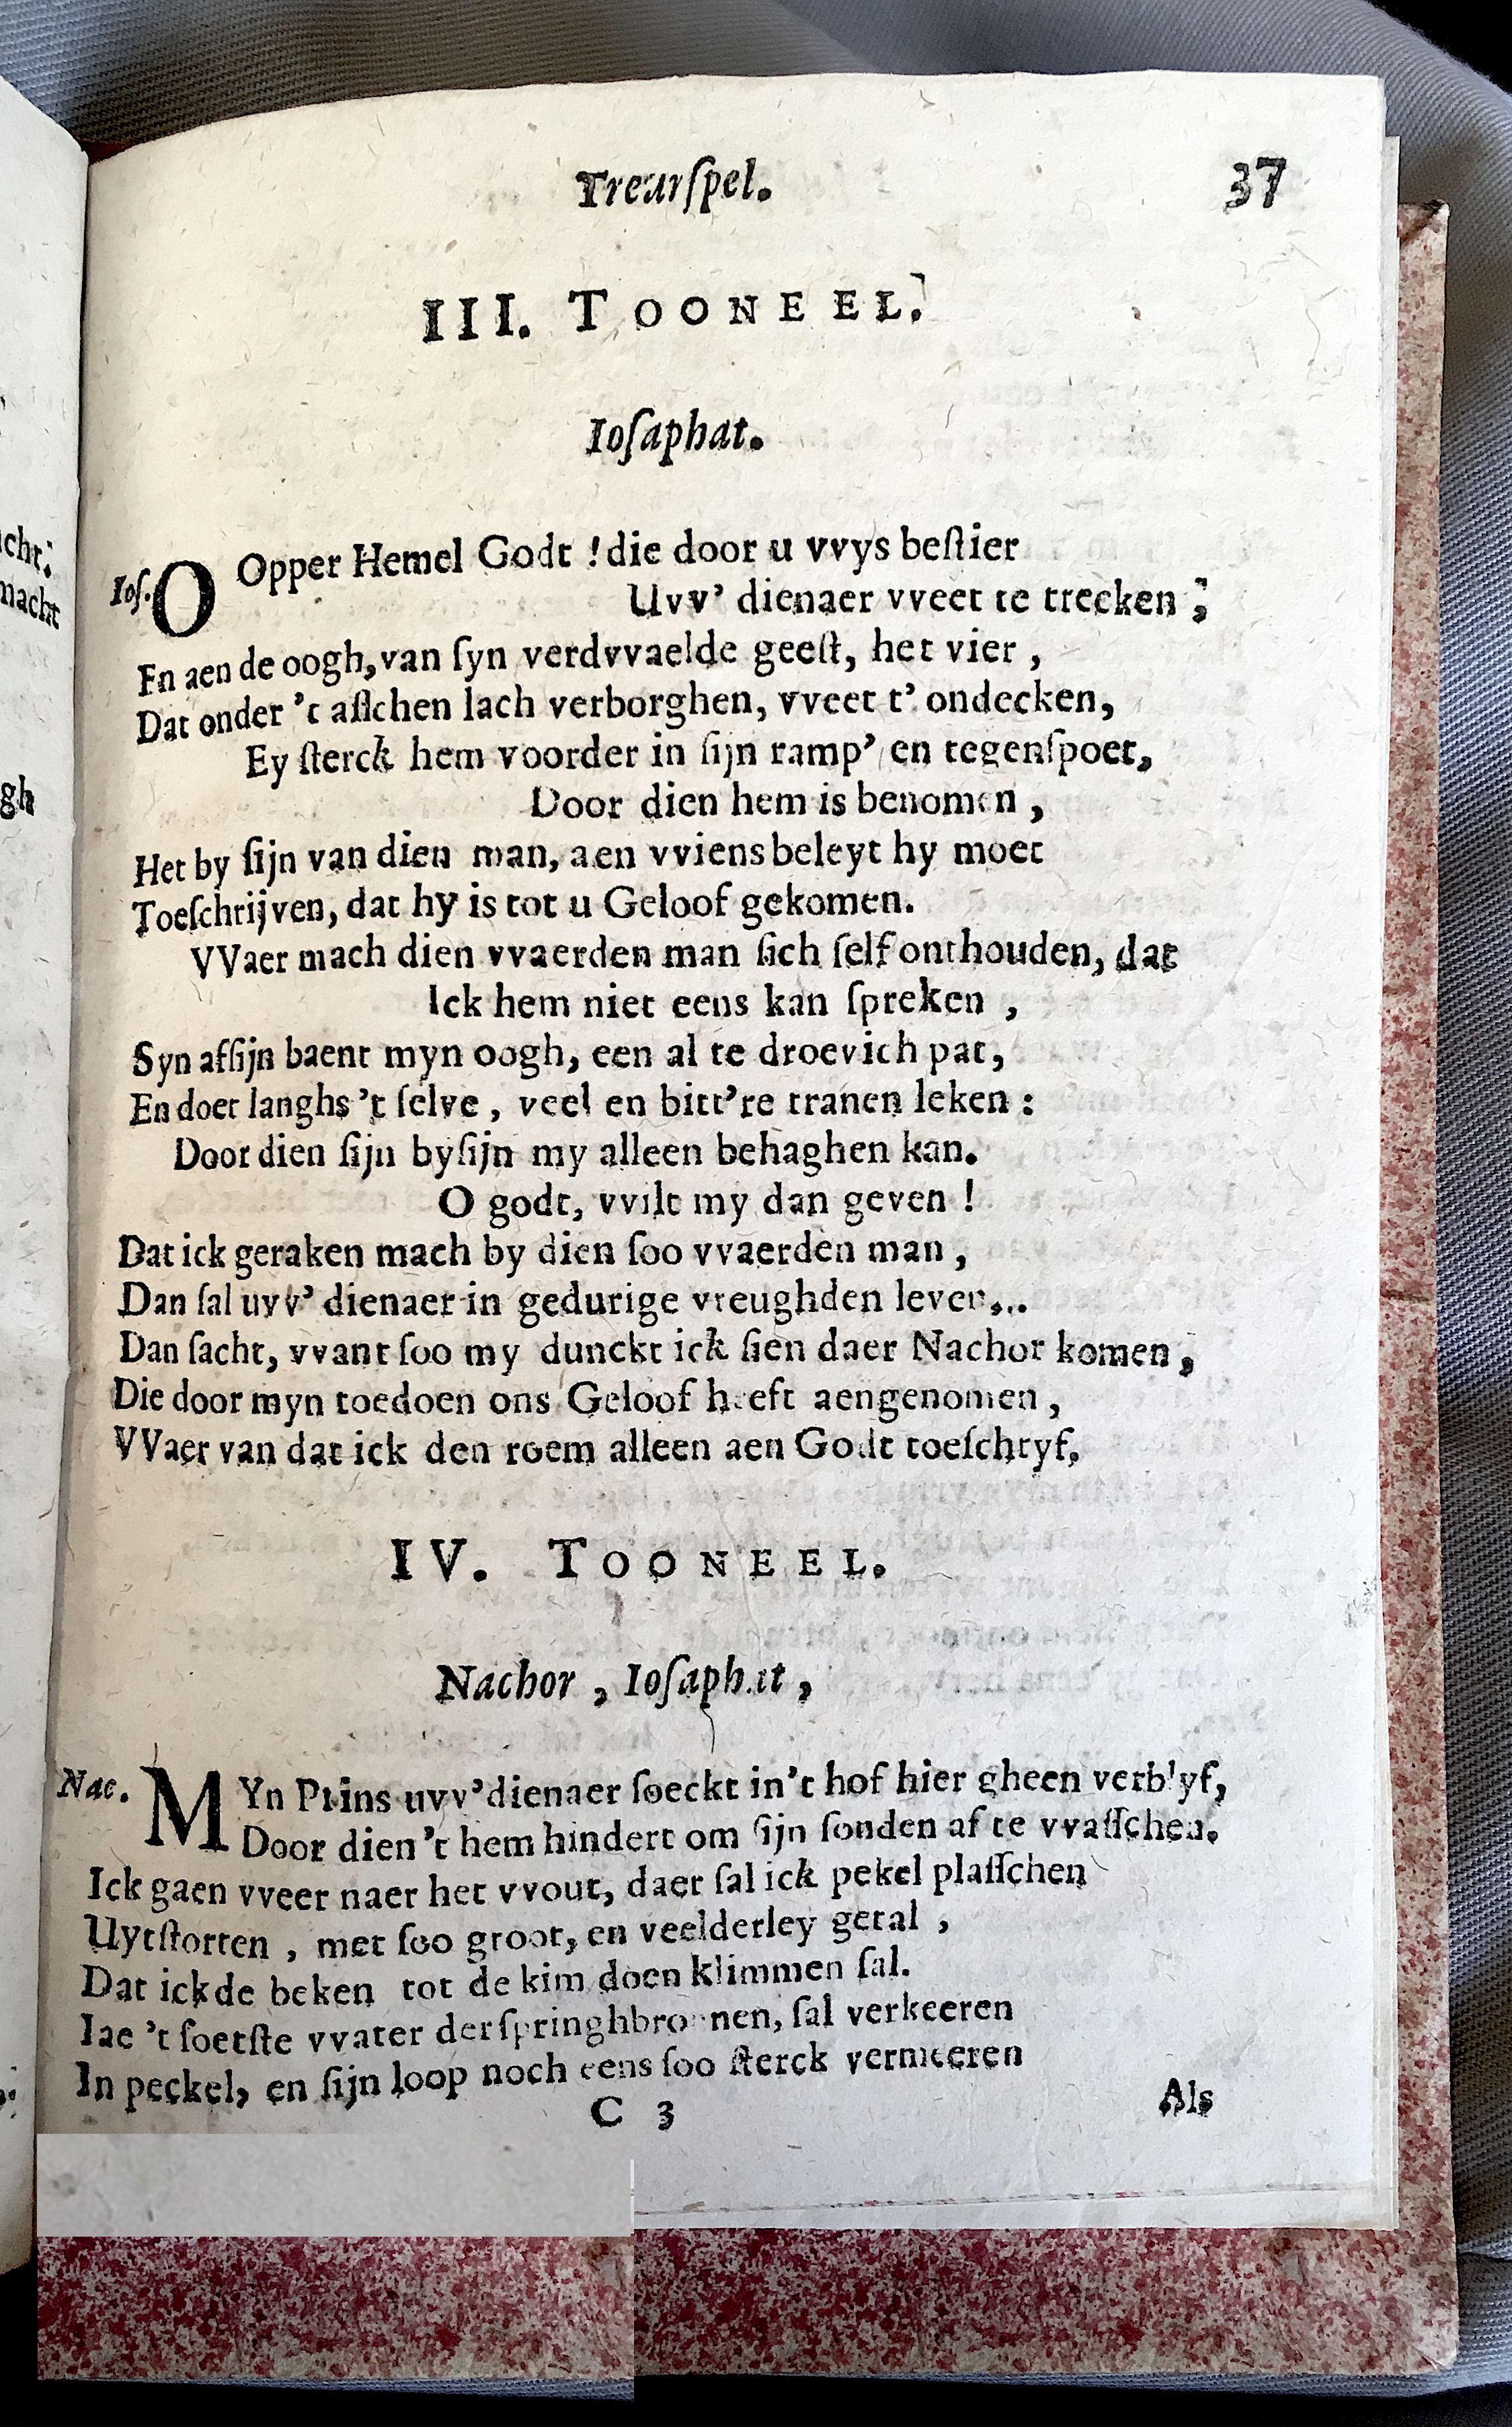 Treurſpel. 37
III. TOONEEL.
Ioſaphat.
Ioſ. O Opper Hemel Godt ! die door u vvys beſtier
Uvv' dienaer vveet te trecken ;
En aen de oogh, van ſyn verdvvaelde geeſt, het vier ,
Dat onder 't aſſchen lach verborghen, vveet t' ondecken,
Ey ſterck hem voorder in ſijn ramp' en tegenſpoet,
Door dien hem is benomen ,
Het by ſijn van dien man, aen vviens beleyt hy moet
Toeſchrijven, dat hy is tot u Geloof gekomen.
VVaer mach dien vvaerden man ſich ſelf onthouden, dat
Ick hem niet eens kan ſpreken ,
Syn afſijn baent myn oogh, een al te droevich pat,
En doet langhs 't ſelve , veel en bitt're tranen leken :
Door dien ſijn byſijn my alleen behaghen kan.
O godt, vvilt my dan geven !
Dat ick geraken mach by dien ſoo vvaerden man ,
Dan ſal uvv' dienaer in gedurige vreughden leven...
Dan ſacht, vvant ſoo my dunckt ick ſien daer Nachor komen ,
Die door myn toedoen ons Geloof heeft aengenomen ,
VVaer van dat ick den roem alleen aen Godt toeſchryf,
IV. TOONEEL.
Nachor , Ioſaphat ,
Nac. MYn Prins uvv' dienaer ſoeckt in't hof hier gheen verblyf,
Door dien 't hem hindert om ſijn ſonden af te vvaſſchen.
Ick gaen vveer naer het vvout, daer ſal ick pekel plaſſchen
Uytſtorten , met ſoo groot, en veelderley getal ,
Dat ick de beken tot de kim doen klimmen ſal.
Iae 't ſoetſte vvater der ſpringhbronnen, ſal verkeeren
In peckel, en ſijn loop noch eens ſoo ſterck vermeeren
C 3 Als
cht:
macht
gh